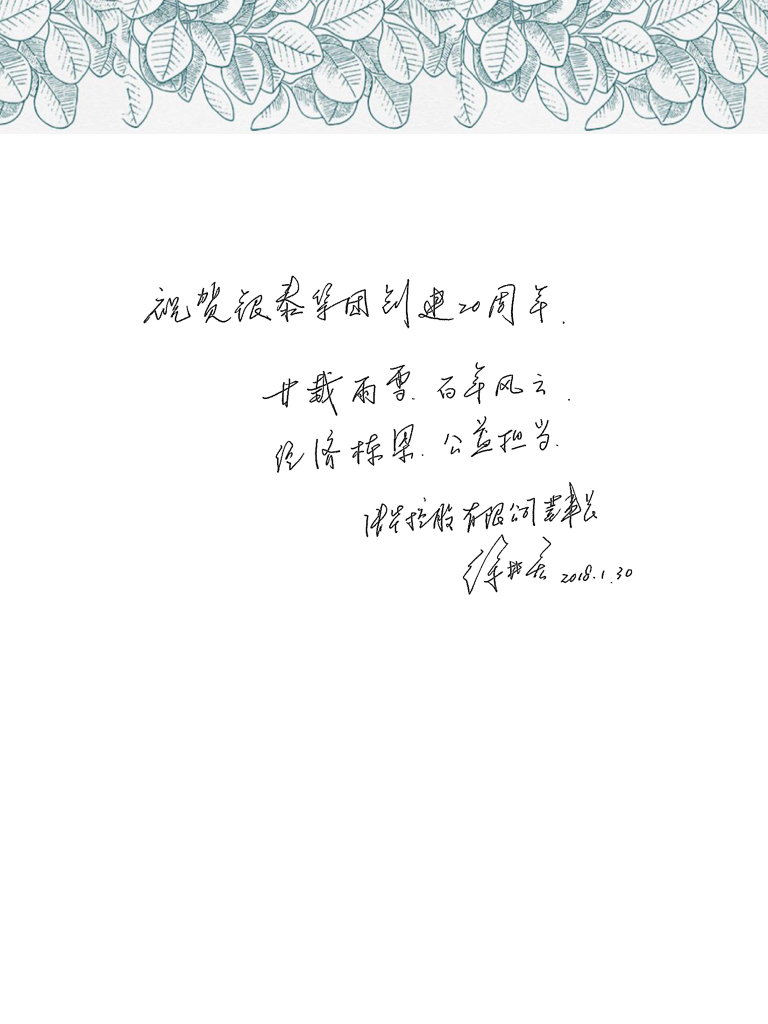 祝贺银泰集团创建20周年.
廿载雨雪.百年风云.
经济栋梁.公益担当.
控股有限公司董事长
徐 2018.1.30